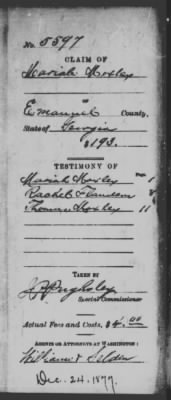 No. 5597
CLAIM OF
Mariah Moxley
OF
Emanuel County,
State of Georgia
$193.
TESTIMONY OF
Page.
Mariah Moxley 1
Rachel
Thomas Moxley 11
TAKEN BY
Special Commissioner
Actual Fees and Costs, $4.00
AGENTS OR ATTORNEYS AT WASHINGTON:
William & Selden
Dec. 24. 1877.